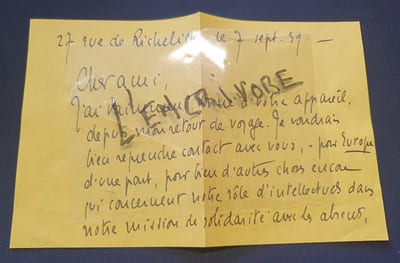 27 rue de Richelieu, le 7 sept. 39 —
Cher ami,
J'ai vainement de votre appareil,
depuis mon retour de voyage. Je voudrais
bien reprendre contact avec vous, - pour Europe
d'une part, pour bien d'autres choses encore
qui concernent notre rôle d'intellectuels dans
notre mission de solidarité avec les absents,
L'ENCRIVORE